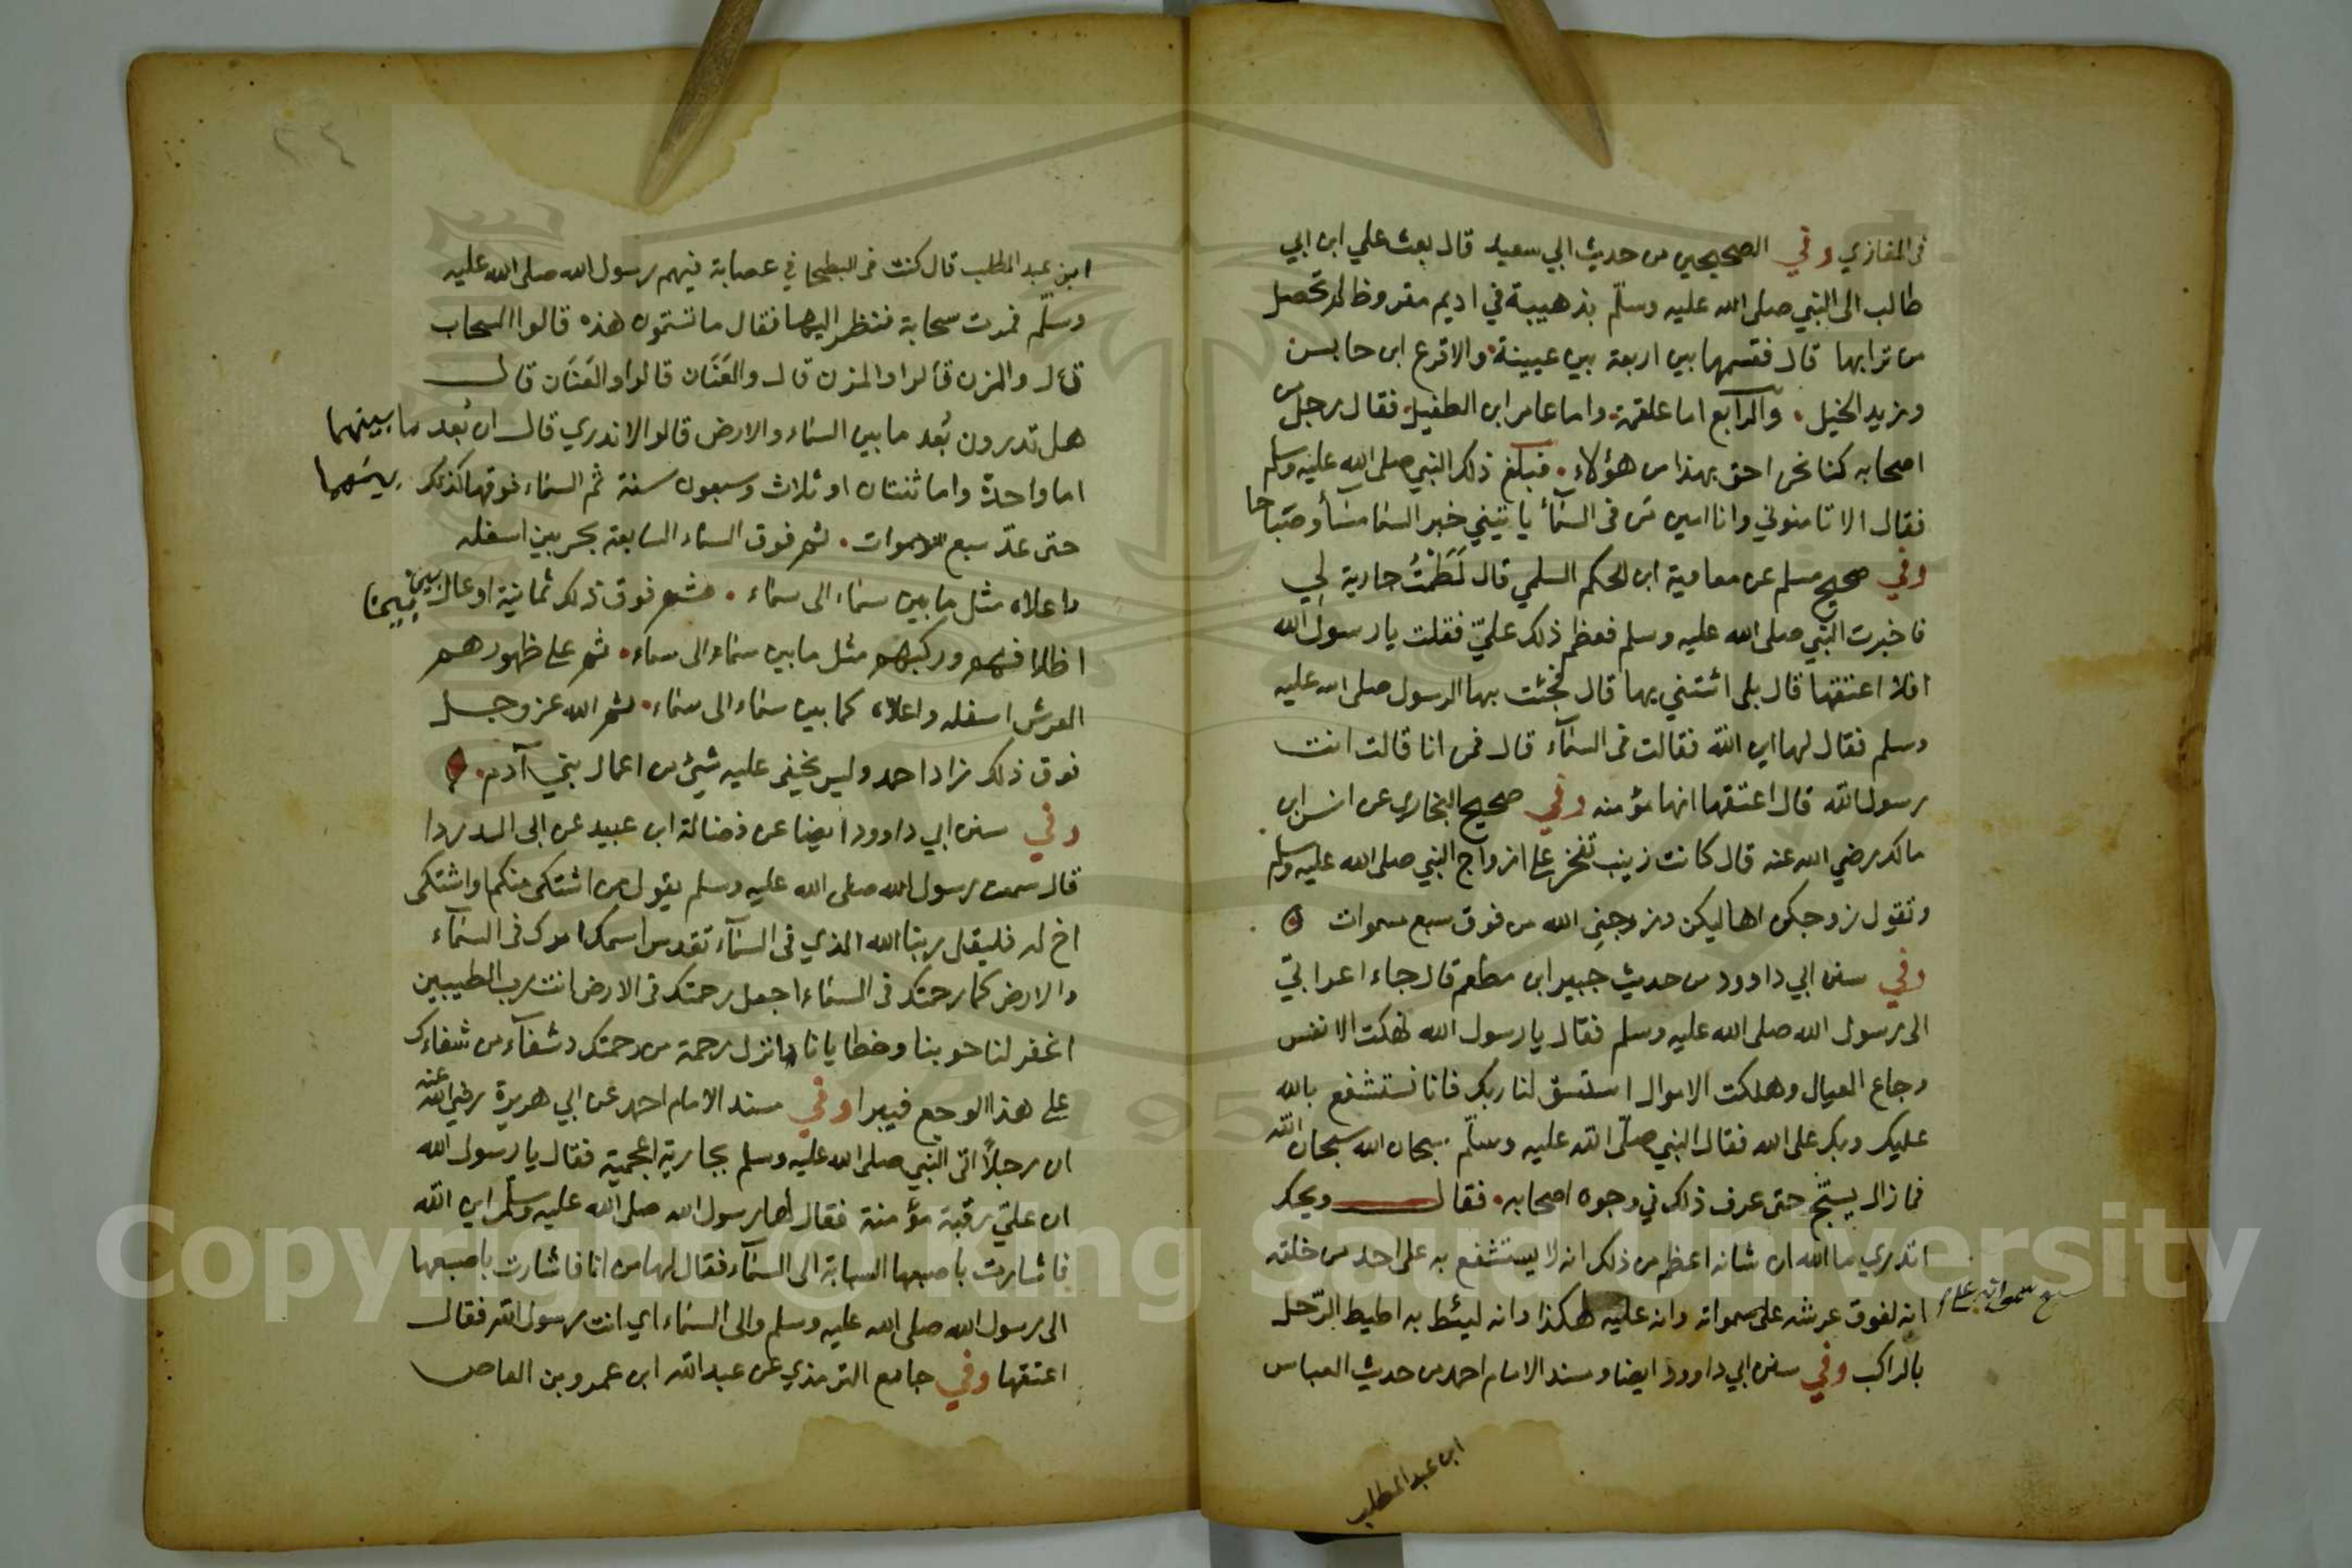 في المغازي وفي الصحيحين من حديث ابي سعيد قال بعث علي ابن ابي
طالب الى النبي صلى الله عليه وسلّم بذهيبة في اديم مقروظ لم تحصل
من ترابها قال فقسمها بين اربعة بين عيينة والاقرع ابن حابس
وزيد الخيل والرابع اما علقمة واما عامر ابن الطفيل فقال رجل من
اصحابه كنا نحن احق بهذا من هؤلاء فبلغ ذلك النبي صلى الله عليه وسلم
فقال الا تامنوني وانا امين من في السمآء ياتيني خبر السما مسأ وصباحا
وفي صحيح مسلم عن معاوية ابن الحكم السلمي قال لَطَمْتُ جارية لي
فاخبرت النبي صلى الله عليه وسلم فعظم ذلك عليّ فقلت يا رسول الله
افلا اعتقها قال بلى ائتني بها قال فجئت بها الرسول صلى الله عليه
وسلم فقال لها اين الله فقالت في السمآء قال فمن انا قالت انت
رسول الله قال اعتقها انها مؤمنه وفي صحيح البخاري عن انس ابن
مالك رضي الله عنه قال كانت زينب تفخر على ازواج النبي صلى الله عليه وسلم
وتقول زوجكن اهاليكن وزوجني الله من فوق سبع سموات
وفي سنن ابي داوود من حديث جبير ابن مطعم قال جاء اعرابيّ
الى رسول الله صلى الله عليه وسلم فقال يا رسول الله نهكت الانفس
وجاع العيال وهلكت الاموال استسق لنا ربك فانا نستشفع بالله
عليك وبك على الله فقال النبي صلّى الله عليه وسلّم سبحان الله سبحان الله
فما زال يسبّح حتى عرف ذلك في وجوه اصحابه فقال ويحك
اتدري ما الله ان شانه اعظم من ذلك انه لا يستشفع به على احد من خلقه
انه لفوق عرشه على سمواته وانه عليه لهكذا وانه ليئط به اطيط الرّحل
بالراكب وفي سنن ابي داوود ايضا ومسند الامام احمد من حديث العباس
ابن عبد المطلب
٢٤
ابن عبد المطلب قال كنت في البطحا في عصابة فيهم رسول الله صلى الله عليه
وسلّم فمرت سحابة فنظر اليها فقال ما تسمون هذه قالوا السحاب
قال والمزن قالوا والمزن قال والعَنَان قالوا والعَنَان قال
هل تدرون بُعد ما بين السماء والارض قالوا لا ندري قال ان بُعد ما بينهما
اما واحدة واما ثنتان او ثلاث وسبعون سنة ثم السماء فوقها كذلك
حتى عدّ سبع سموات ثم فوق السماء السابعة بحر بين اسفله
واعلاه مثل ما بين سماء الى سماء ثم فوق ذلك ثمانية اوعال بين
اظلافهم وركبهم مثل ما بين سماء الى سماء ثم على ظهورهم
العرش اسفله واعلاه كما بين سماء الى سماء ثم الله عز وجل
فوق ذلك زاد احمد وليس يخفى عليه شيئ من اعمال بني آدم
وفي سنن ابي داوود ايضا عن فضالة ابن عبيد عن ابى الدردا
قال سمعت رسول الله صلى الله عليه وسلم يقول من اشتكى منكم او اشتكى
اخ له فليقل ربنا الله الذي في السمآء تقدس اسمك امرك في السمآء
والارض كما رحمتك في السماء اجعل رحمتك في الارض انت رب الطيبين
اغفر لنا حوبنا وخطايانا وانزل رحمة من رحمتك وشفآء من شفاءك
على هذا الوجع فيبرا وفي مسند الامام احمد عن ابي هريرة رضي الله عنه
ان رجلاً اتى النبي صلى الله عليه وسلم بجارية اعجمية فقال يا رسول الله
ان عليّ رقبة مؤمنة فقال لها رسول الله صلى الله عليه وسلّم اين الله
فاشارت باصبعها السبابة الى السمآء فقال لها من انا فاشارت باصبعها
الى رسول الله صلى الله عليه وسلم والى السماء اي انت رسول الله فقال
اعتقها وفي جامع الترمذي عن عبد الله ابن عمرو بن العاص
Copyright © King Saud University